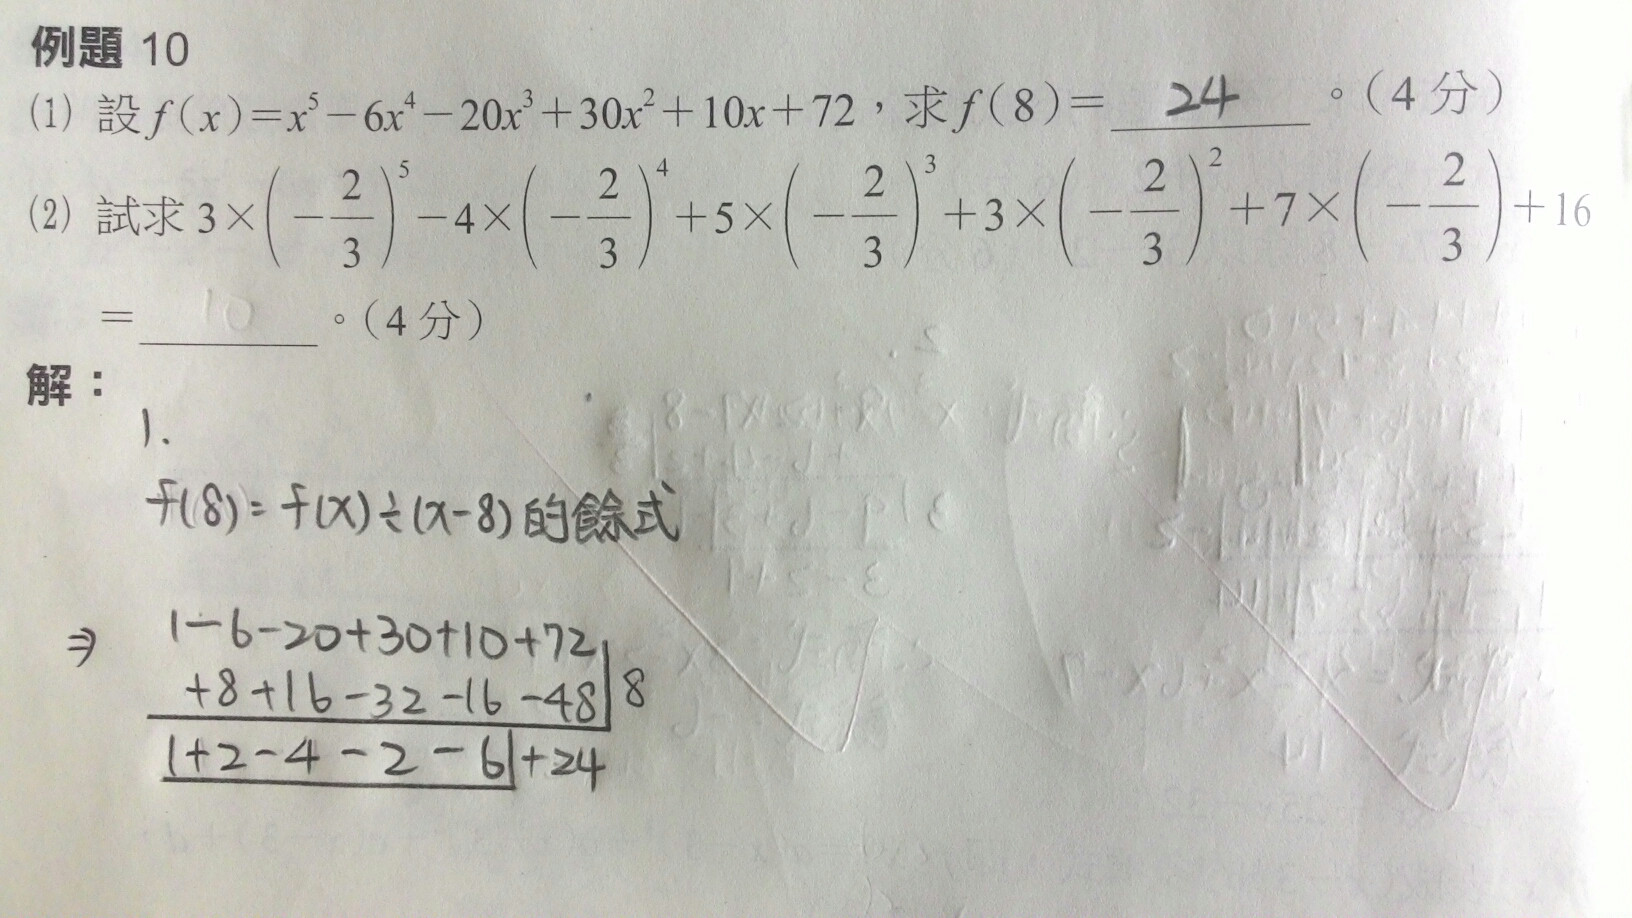 例題 10
(1) 設 f(x)=x⁵-6x⁴-20x³+30x²+10x+72，求 f(8)= 24 。(4 分)
(2) 試求 3×(-2/3)⁵-4×(-2/3)⁴+5×(-2/3)³+3×(-2/3)²+7×(-2/3)+16
= 10 。(4 分)
解：
1.
f(8)=f(x)÷(x-8)的餘式
⇒ 1-6-20+30+10+72
+8+16-32-16-48 | 8
1+2-4-2-6 | +24